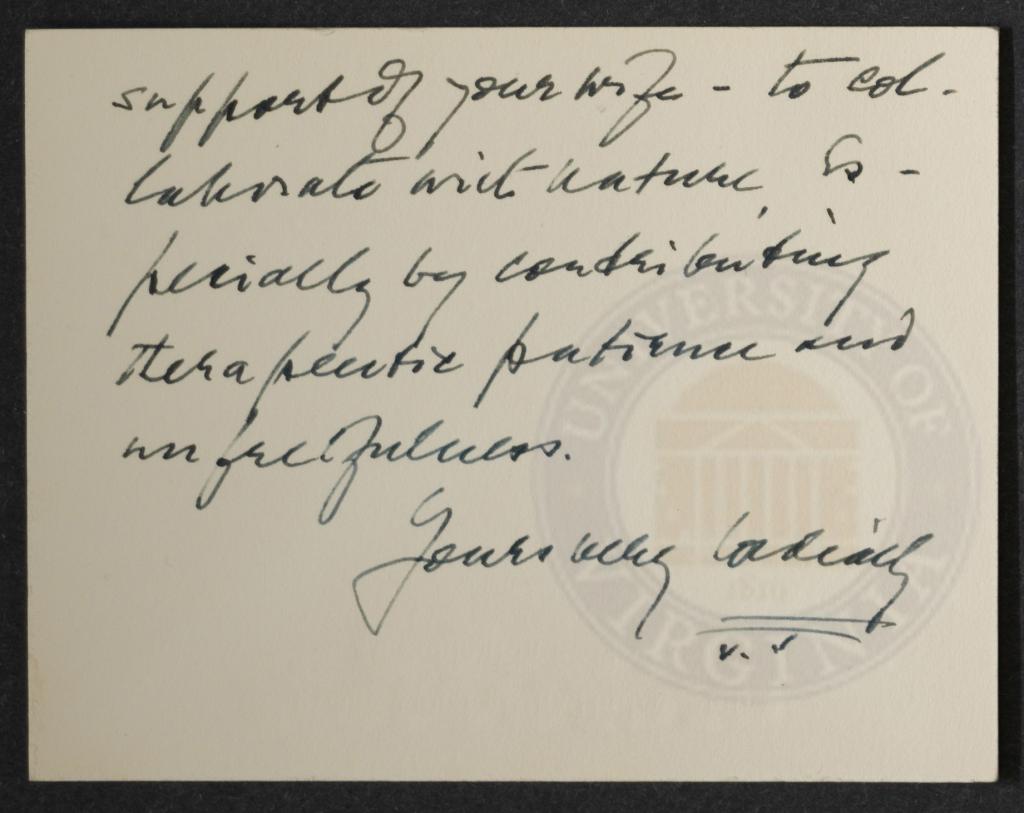 support of your wife - to col-
laborate with nature, es-
pecially by contributing
therapeutic patience and
unfretfulness.
Yours very cordially
UNIVERSITY OF VIRGINIA
1819